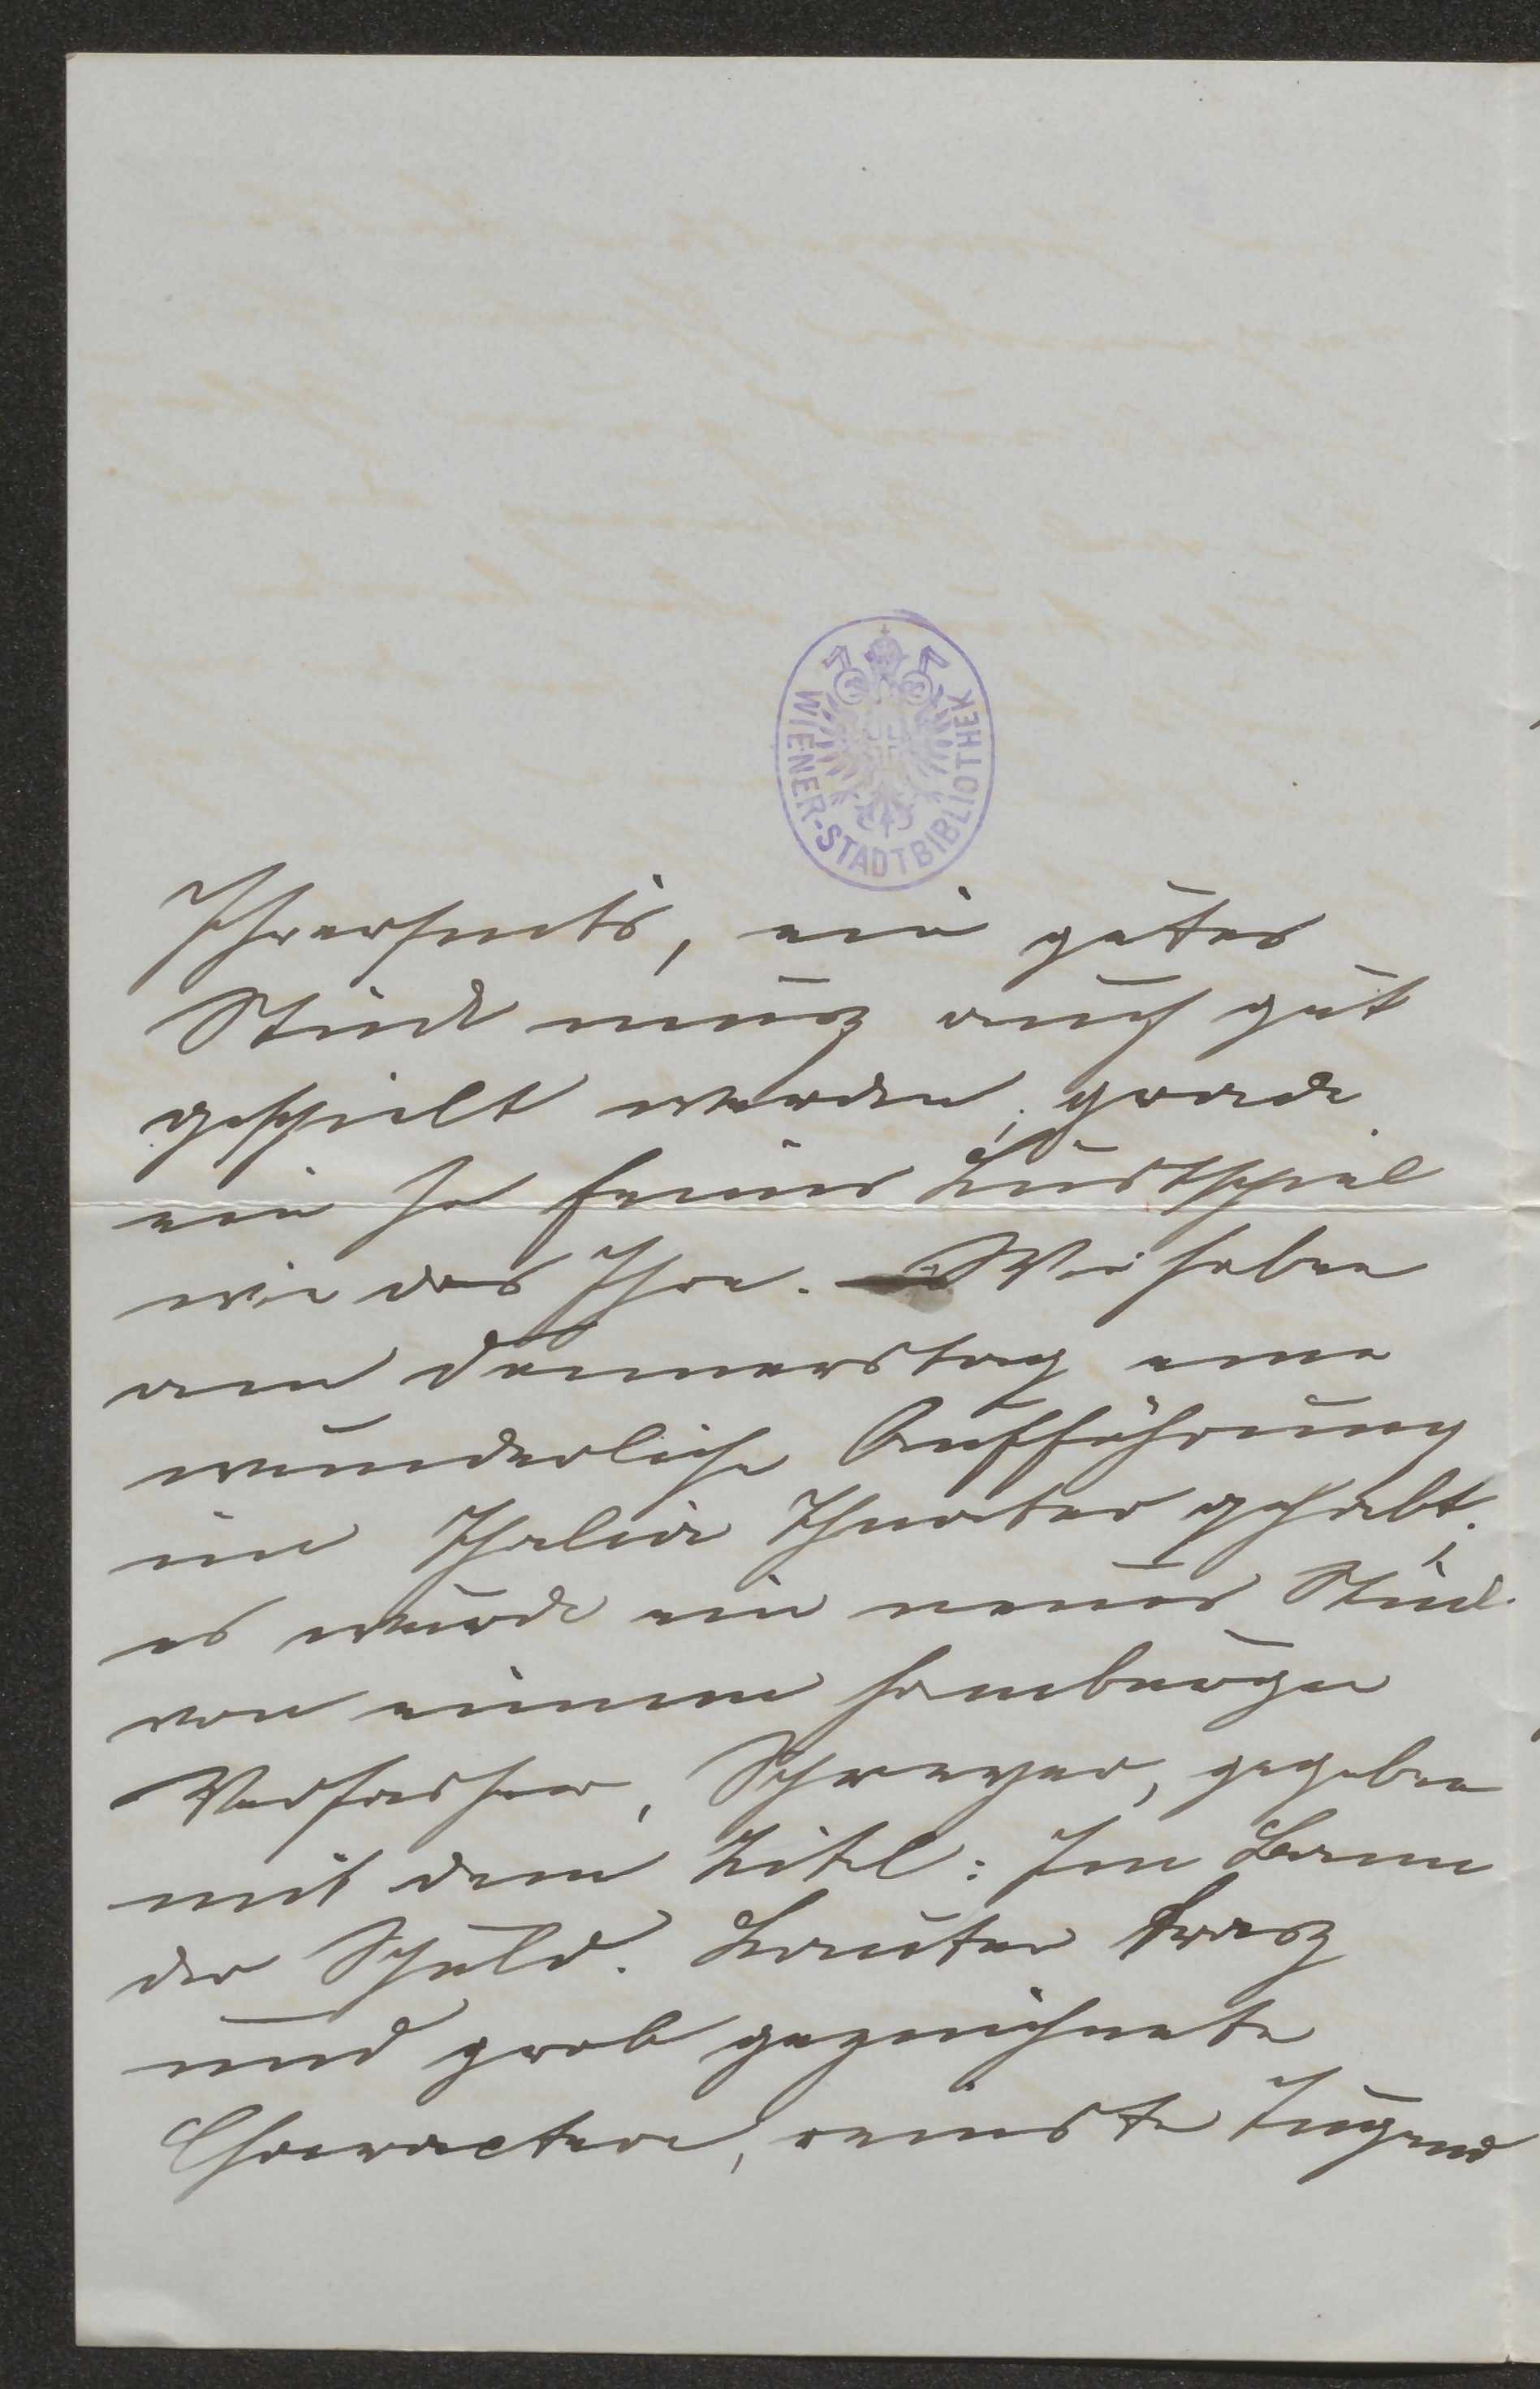 WIENER-STADTBIBLIOTHEK
Ihrerseits, ein gutes
Stück muß auch gut
gespielt werden, grade
ein so feines Lustspiel
wie das Ihre. – Wir haben
am Donnerstag eine
wunderliche Aufführung
im Thalia Theater gehabt,
es wurde ein neues Stück
von einem hamburger
Verfasser, Schreyer, gegeben
mit dem Titel: Im Bann
der Schuld. Lauter
und grob gezeichnete
Charactere, reinste Tugend